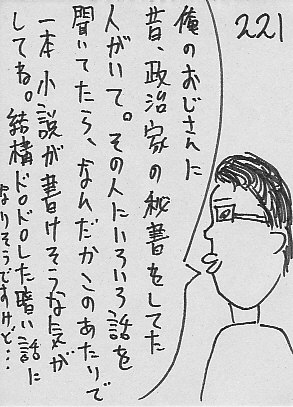 221
俺のおじさんに
昔、政治家の秘書をしてた
人がいて。その人にいろいろ話を
聞いてたら、なんだかこのあたりで
一本小説が書けそうな気が
してね。結構ドロドロした暗い話に
なりそうですけど…